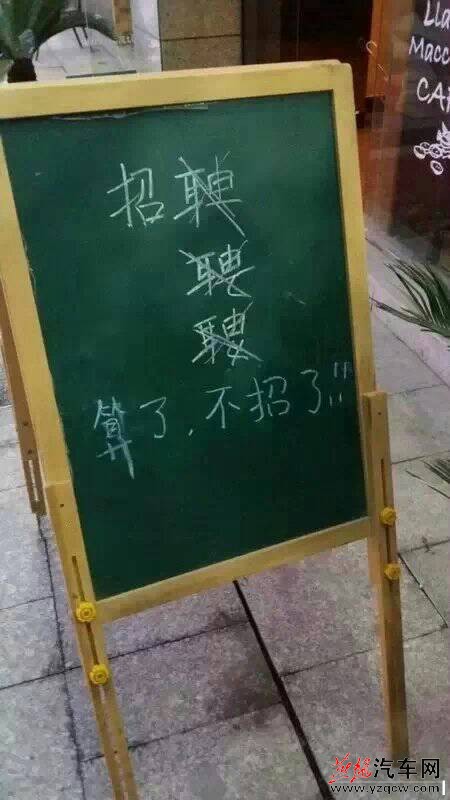 招聘
聘
聘
算了,不招了!!
Lla
Macc
CA
汽车网
www.yzqcw.com